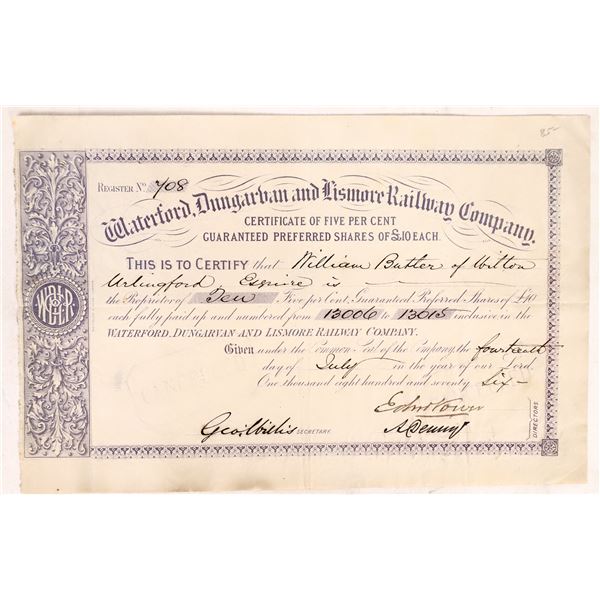 85-
REGISTER No. 708
Waterford, Dungarvan and Lismore Railway Company.
CERTIFICATE OF FIVE PER CENT
GUARANTEED PREFERRED SHARES OF £10 EACH.
THIS IS TO CERTIFY that William Butler of Wilton
Urlingford Esquire is
the Proprietor of Ten Five per Cent. Guaranteed Preferred Shares of £10
each fully paid up and numbered from 13006 to 13015 inclusive in the
WATERFORD, DUNGARVAN AND LISMORE RAILWAY COMPANY.
Given under the Common Seal of the Company, the fourteenth
day of July in the year of our Lord
One thousand eight hundred and seventy Six-
Geo. Willis SECRETARY.
A Denny
DIRECTORS